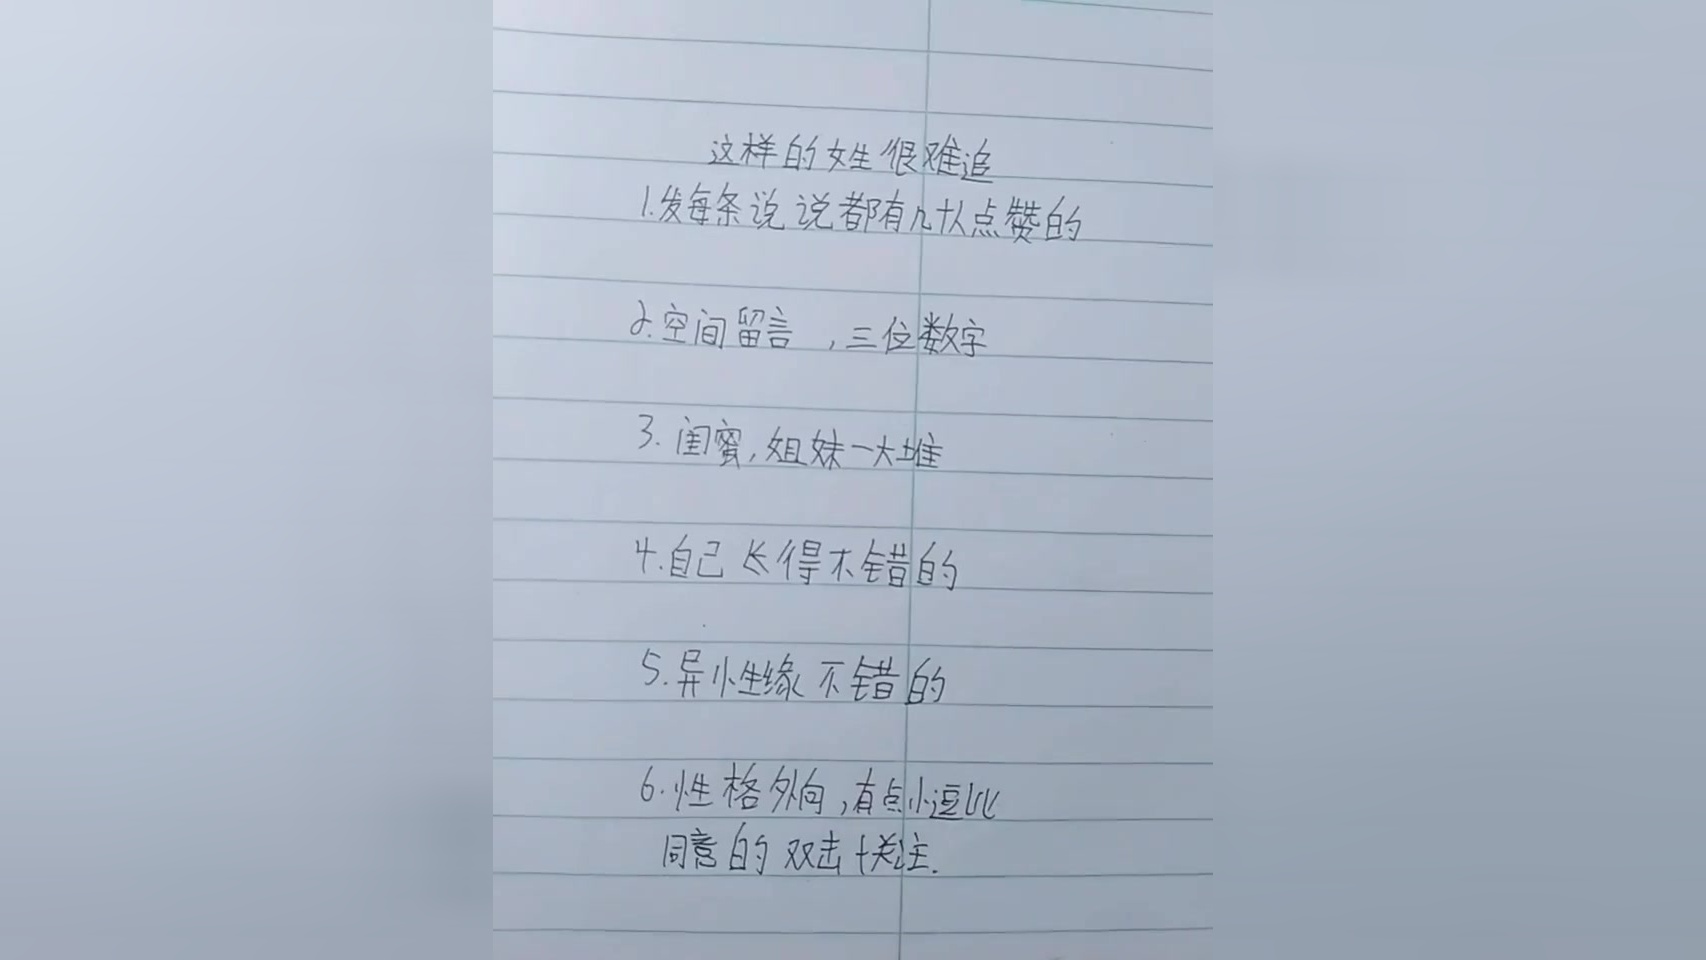 这样的女生很难追
1.发每条说说都有几十人点赞的
2.空间留言,三位数字
3.闺蜜,姐妹一大堆
4.自己长得不错的
5.异性缘不错的
6.性格外向,有点小逗比
同意的双击+关注.